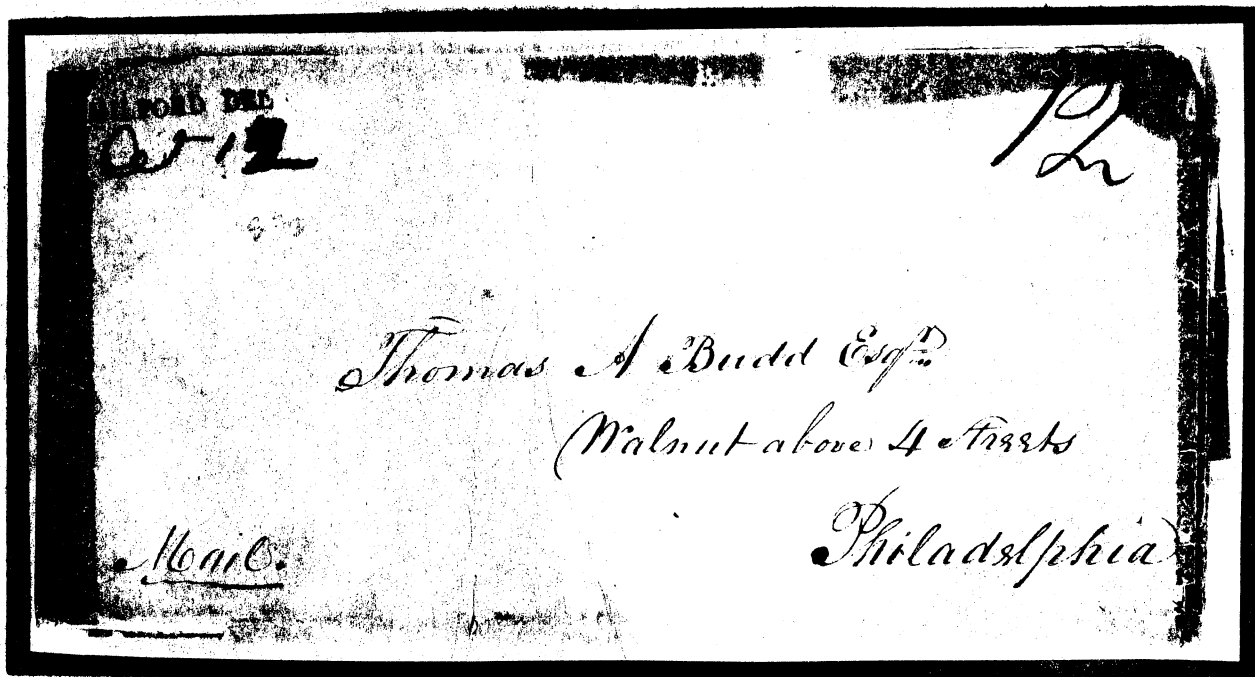 MILFORD DEL
Oct 12
12
Thomas A Budd Esqr.
Walnut above 4 Streets
Philadelphia
Mail.